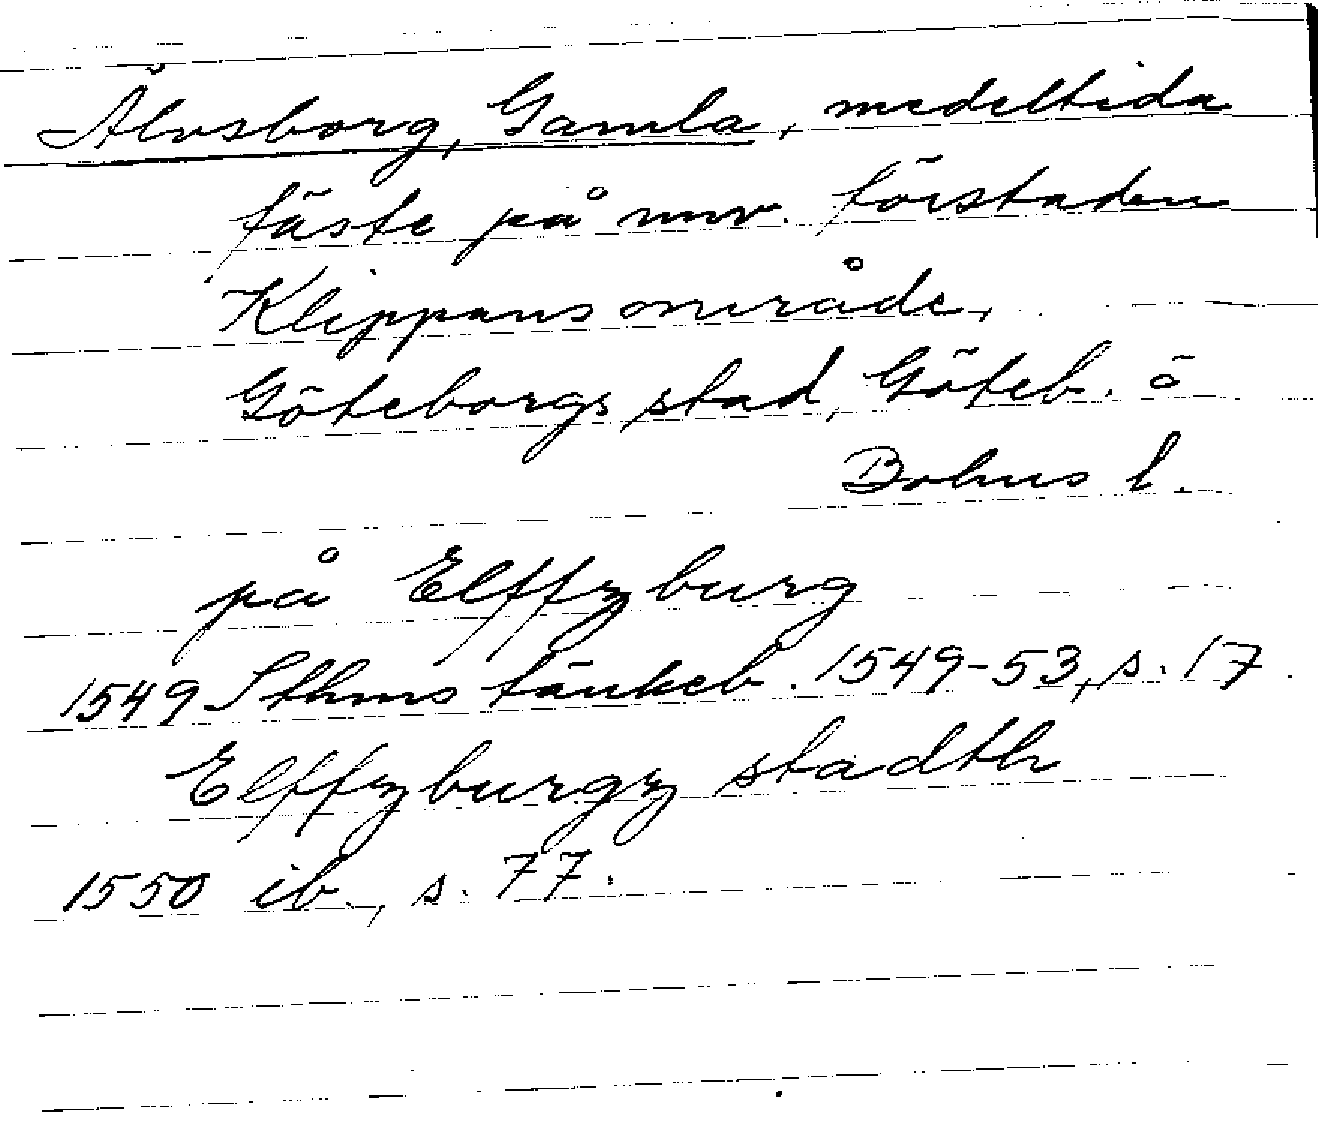 Älvsborg, Gamla, medeltida
fäste på nuv. förstaden
Klippans område,
Göteborgs stad, Göteb. o
Bohus l.
på Elffzburg
1549 Sthms tänkeb. 1549-53, s. 17
Elffzburgz stadth
1550 ib., s. 77.